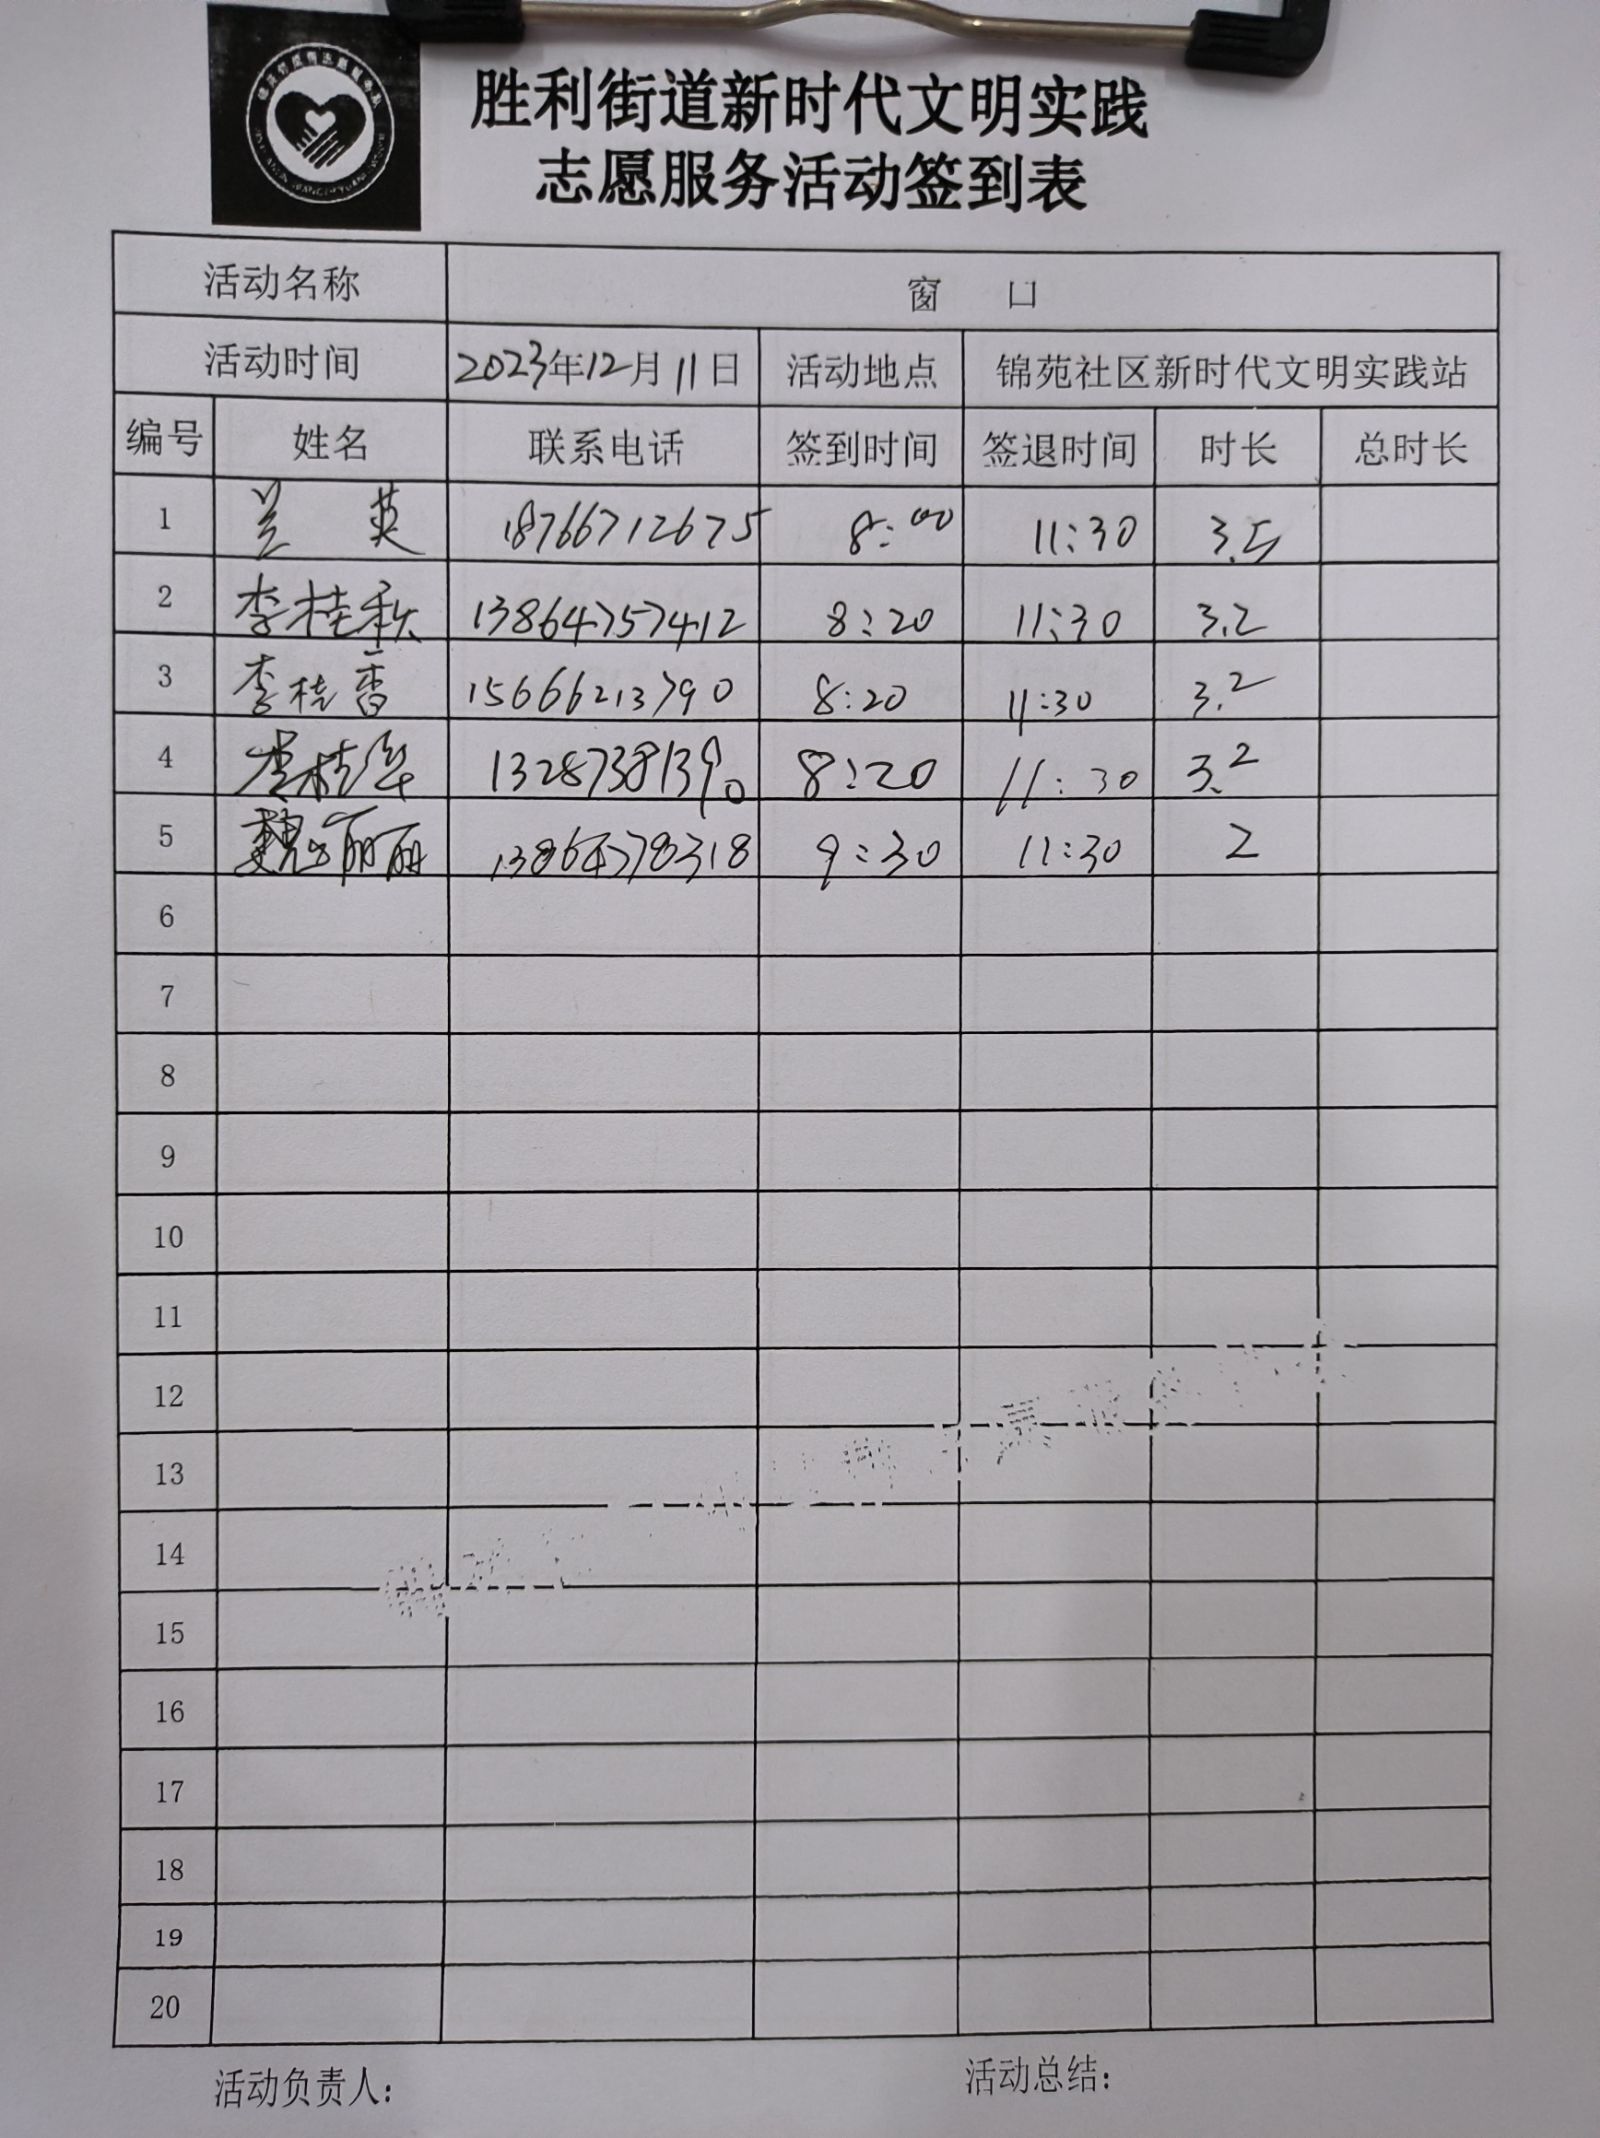 胜利街道新时代文明实践
志愿服务活动签到表
活动名称 窗 口
活动时间 2023年12月11日 活动地点 锦苑社区新时代文明实践站
编号 姓名 联系电话 签到时间 签退时间 时长 总时长
1 兰 英 18766712675 8:00 11:30 3.5
2 李桂秋 13864757412 8:20 11:30 3.2
3 李桂香 15666213790 8:20 11:30 3.2
4 李桂华 13287381390 8:20 11:30 3.2
5 魏丽丽 13864778318 9:30 11:30 2
6
7
8
9
10
11
12
13
14
15
16
17
18
19
20
活动负责人: 活动总结: